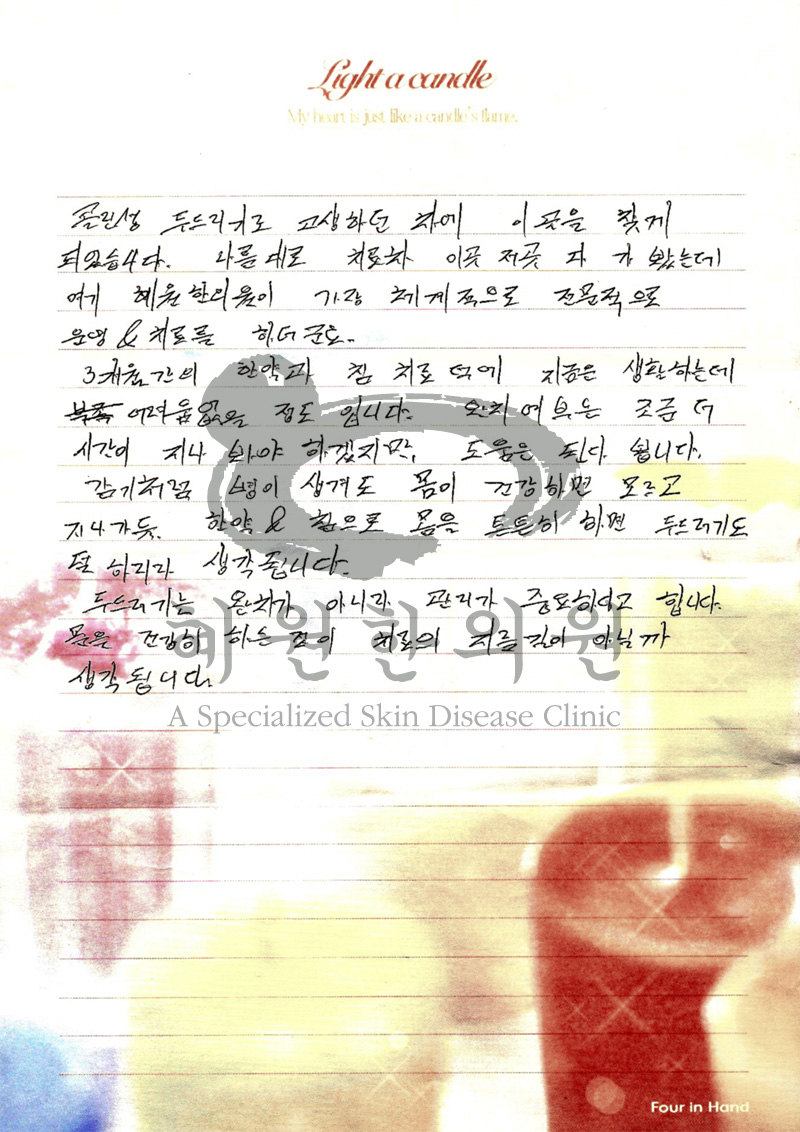 Light a candle
My heart is just like a candle's flame.
콜린성 두드러기로 고생하던 차에 이곳을 찾게
되었습니다. 나름대로 치료차 이곳 저곳 다 가 봤는데
여기 혜원한의원이 가장 체계적으로 전문적으로
운영 & 치료를 하더군요.
3개월간의 한약과 침 치료 덕에 지금은 생활하는데
어려움 없을 정도 입니다. 완치여부는 조금 더
시간이 지나 봐야 하겠지만, 도움은 된다 봅니다.
감기처럼 병이 생겨도 몸이 건강하면 모르고
지나가듯. 한약 & 침으로 몸을 튼튼히 하면 두드러기도
덜 하리라 생각됩니다.
두드러기는 완치가 아니라 관리가 중요하다고 합니다.
몸을 건강히 하는 것이 치료의 지름길이 아닐까
생각됩니다.
혜원한의원
A Specialized Skin Disease Clinic
Four in Hand